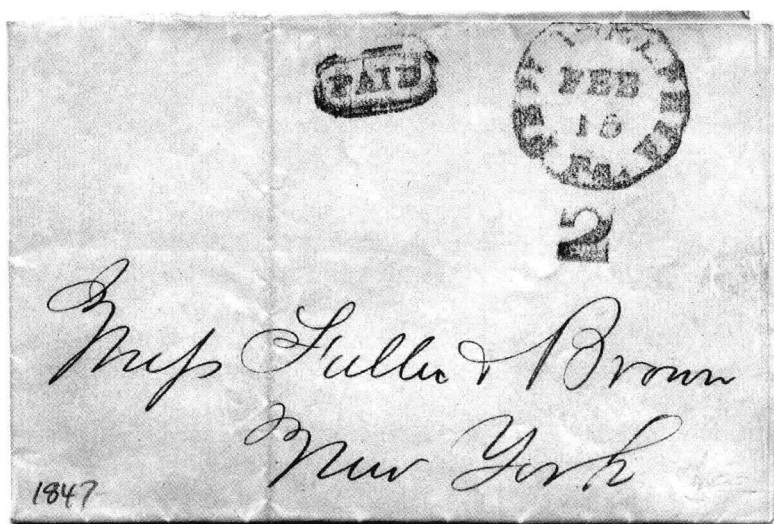 PAID
PHILADELPHIA Pa.
FEB
15
2
Mess Fuller & Brown
New York
1847